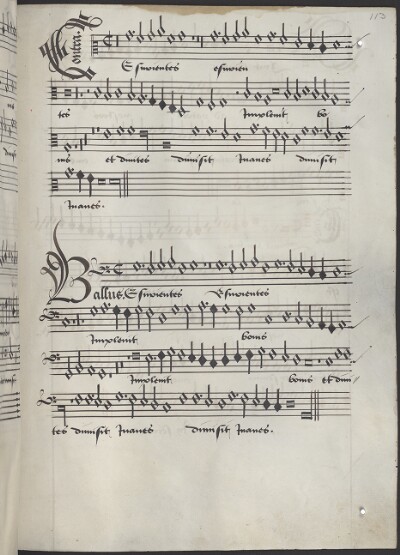 Contra
Esurientes esurien
tes Implevit bo
nis et divites dimisit Inanes dimisit
Inanes.
Bassus. Esurientes Esurientes
Implevit bonis
Implevit bonis et divi
tes dimisit Inanes dimisit Inanes.